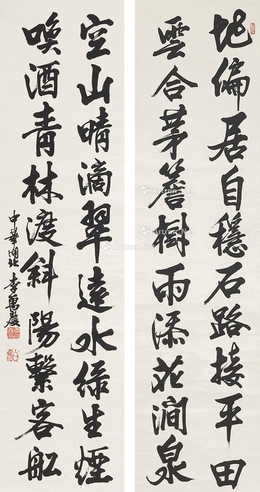 地偏居自穩石路接平田
雲合茅簷樹雨添花澗泉
空山晴滴翠遠水綠生煙
喚酒青林渡斜陽繫客船
中華湖北李萬